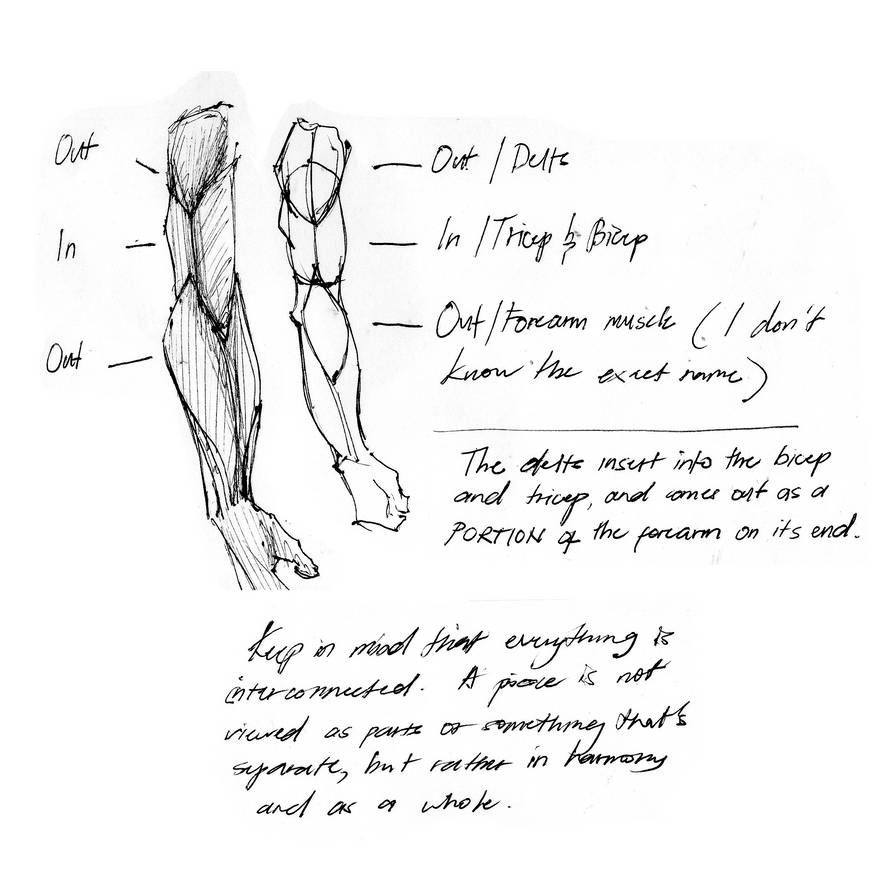 Out
In
Out
Out / Delts
In / Tricep & Bicep
Out / Forearm muscle ( I don't
know the exact name )
The delts insert into the bicep
and tricep, and comes out as a
PORTION of the forearm on its end.
Keep in mind that everything is
interconnected. A piece is not
viewed as parts or something that's
separate, but rather in harmony
and as a whole.